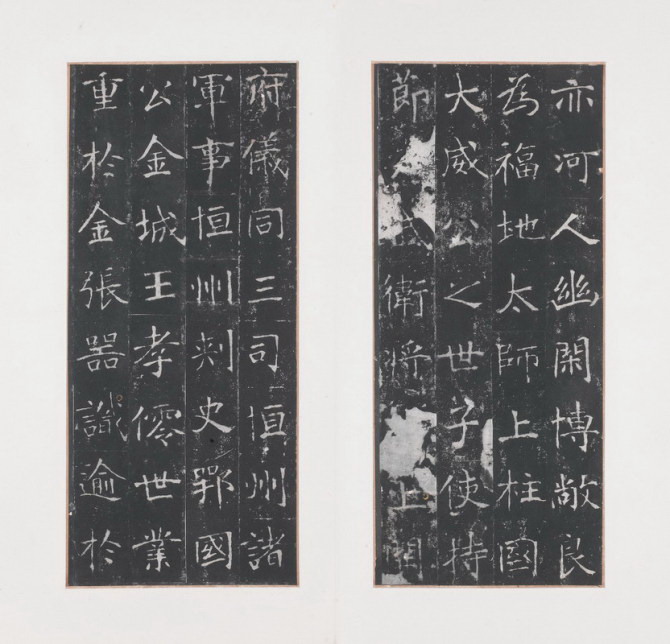 亦河人幽閑博敞良
為福地太師上柱國
大威公之世子使持
節武衛將上開
府儀同三司恒州諸
軍事恒州刾史鄂國
公金城王孝僊世業
重於金張器識逾於